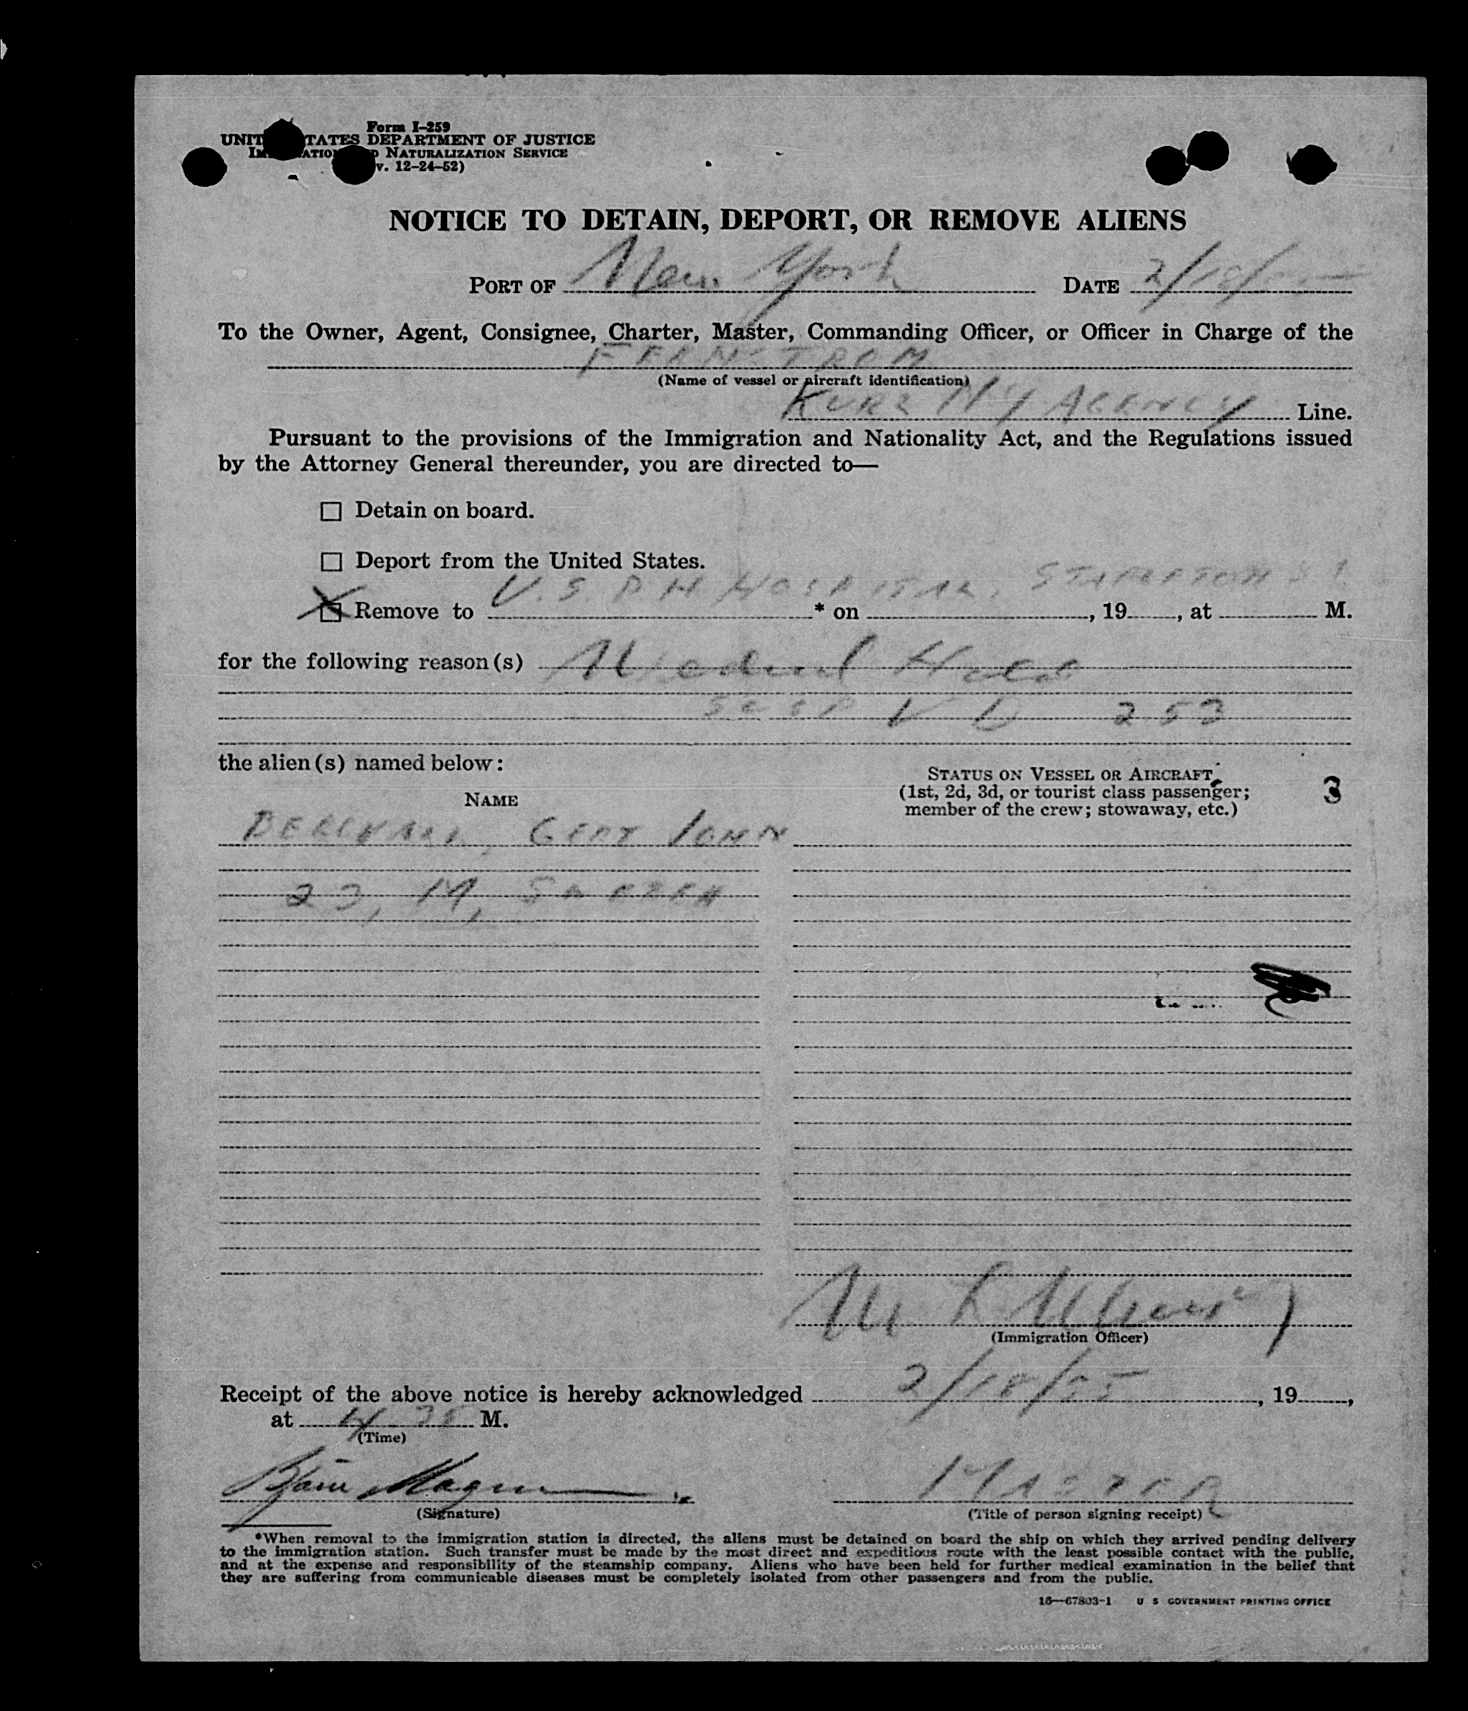 Form I-259
UNIT TATES DEPARTMENT OF JUSTICE
NATURALIZATION SERVICE
v. 12-24-52)
NOTICE TO DETAIN, DEPORT, OR REMOVE ALIENS
PORT OF New York DATE 2/18/55
To the Owner, Agent, Consignee, Charter, Master, Commanding Officer, or Officer in Charge of the
FERMSTROM
(Name of vessel or aircraft identification)
KURZ NY AGENCY Line.
Pursuant to the provisions of the Immigration and Nationality Act, and the Regulations issued
by the Attorney General thereunder, you are directed to—
Detain on board.
Deport from the United States.
Remove to U.S.P.H HOSPITAL, STAPLETON S I * on , 19 , at M.
for the following reason(s) Medical Hold
SUSP V D 253
the alien(s) named below:
STATUS ON VESSEL OR AIRCRAFT
(1st, 2d, 3d, or tourist class passenger;
member of the crew; stowaway, etc.)
3
NAME
GERT JOHN
23, M, SWEDEN
(Immigration Officer)
Receipt of the above notice is hereby acknowledged 2/18/55 , 19 ,
at 4 35 M.
(Time)
MASTER
(Signature)
(Title of person signing receipt)
*When removal to the immigration station is directed, the aliens must be detained on board the ship on which they arrived pending delivery
to the immigration station. Such transfer must be made by the most direct and expeditious route with the least possible contact with the public,
and at the expense and responsibility of the steamship company. Aliens who have been held for further medical examination in the belief that
they are suffering from communicable diseases must be completely isolated from other passengers and from the public.
16—67803-1 U S GOVERNMENT PRINTING OFFICE